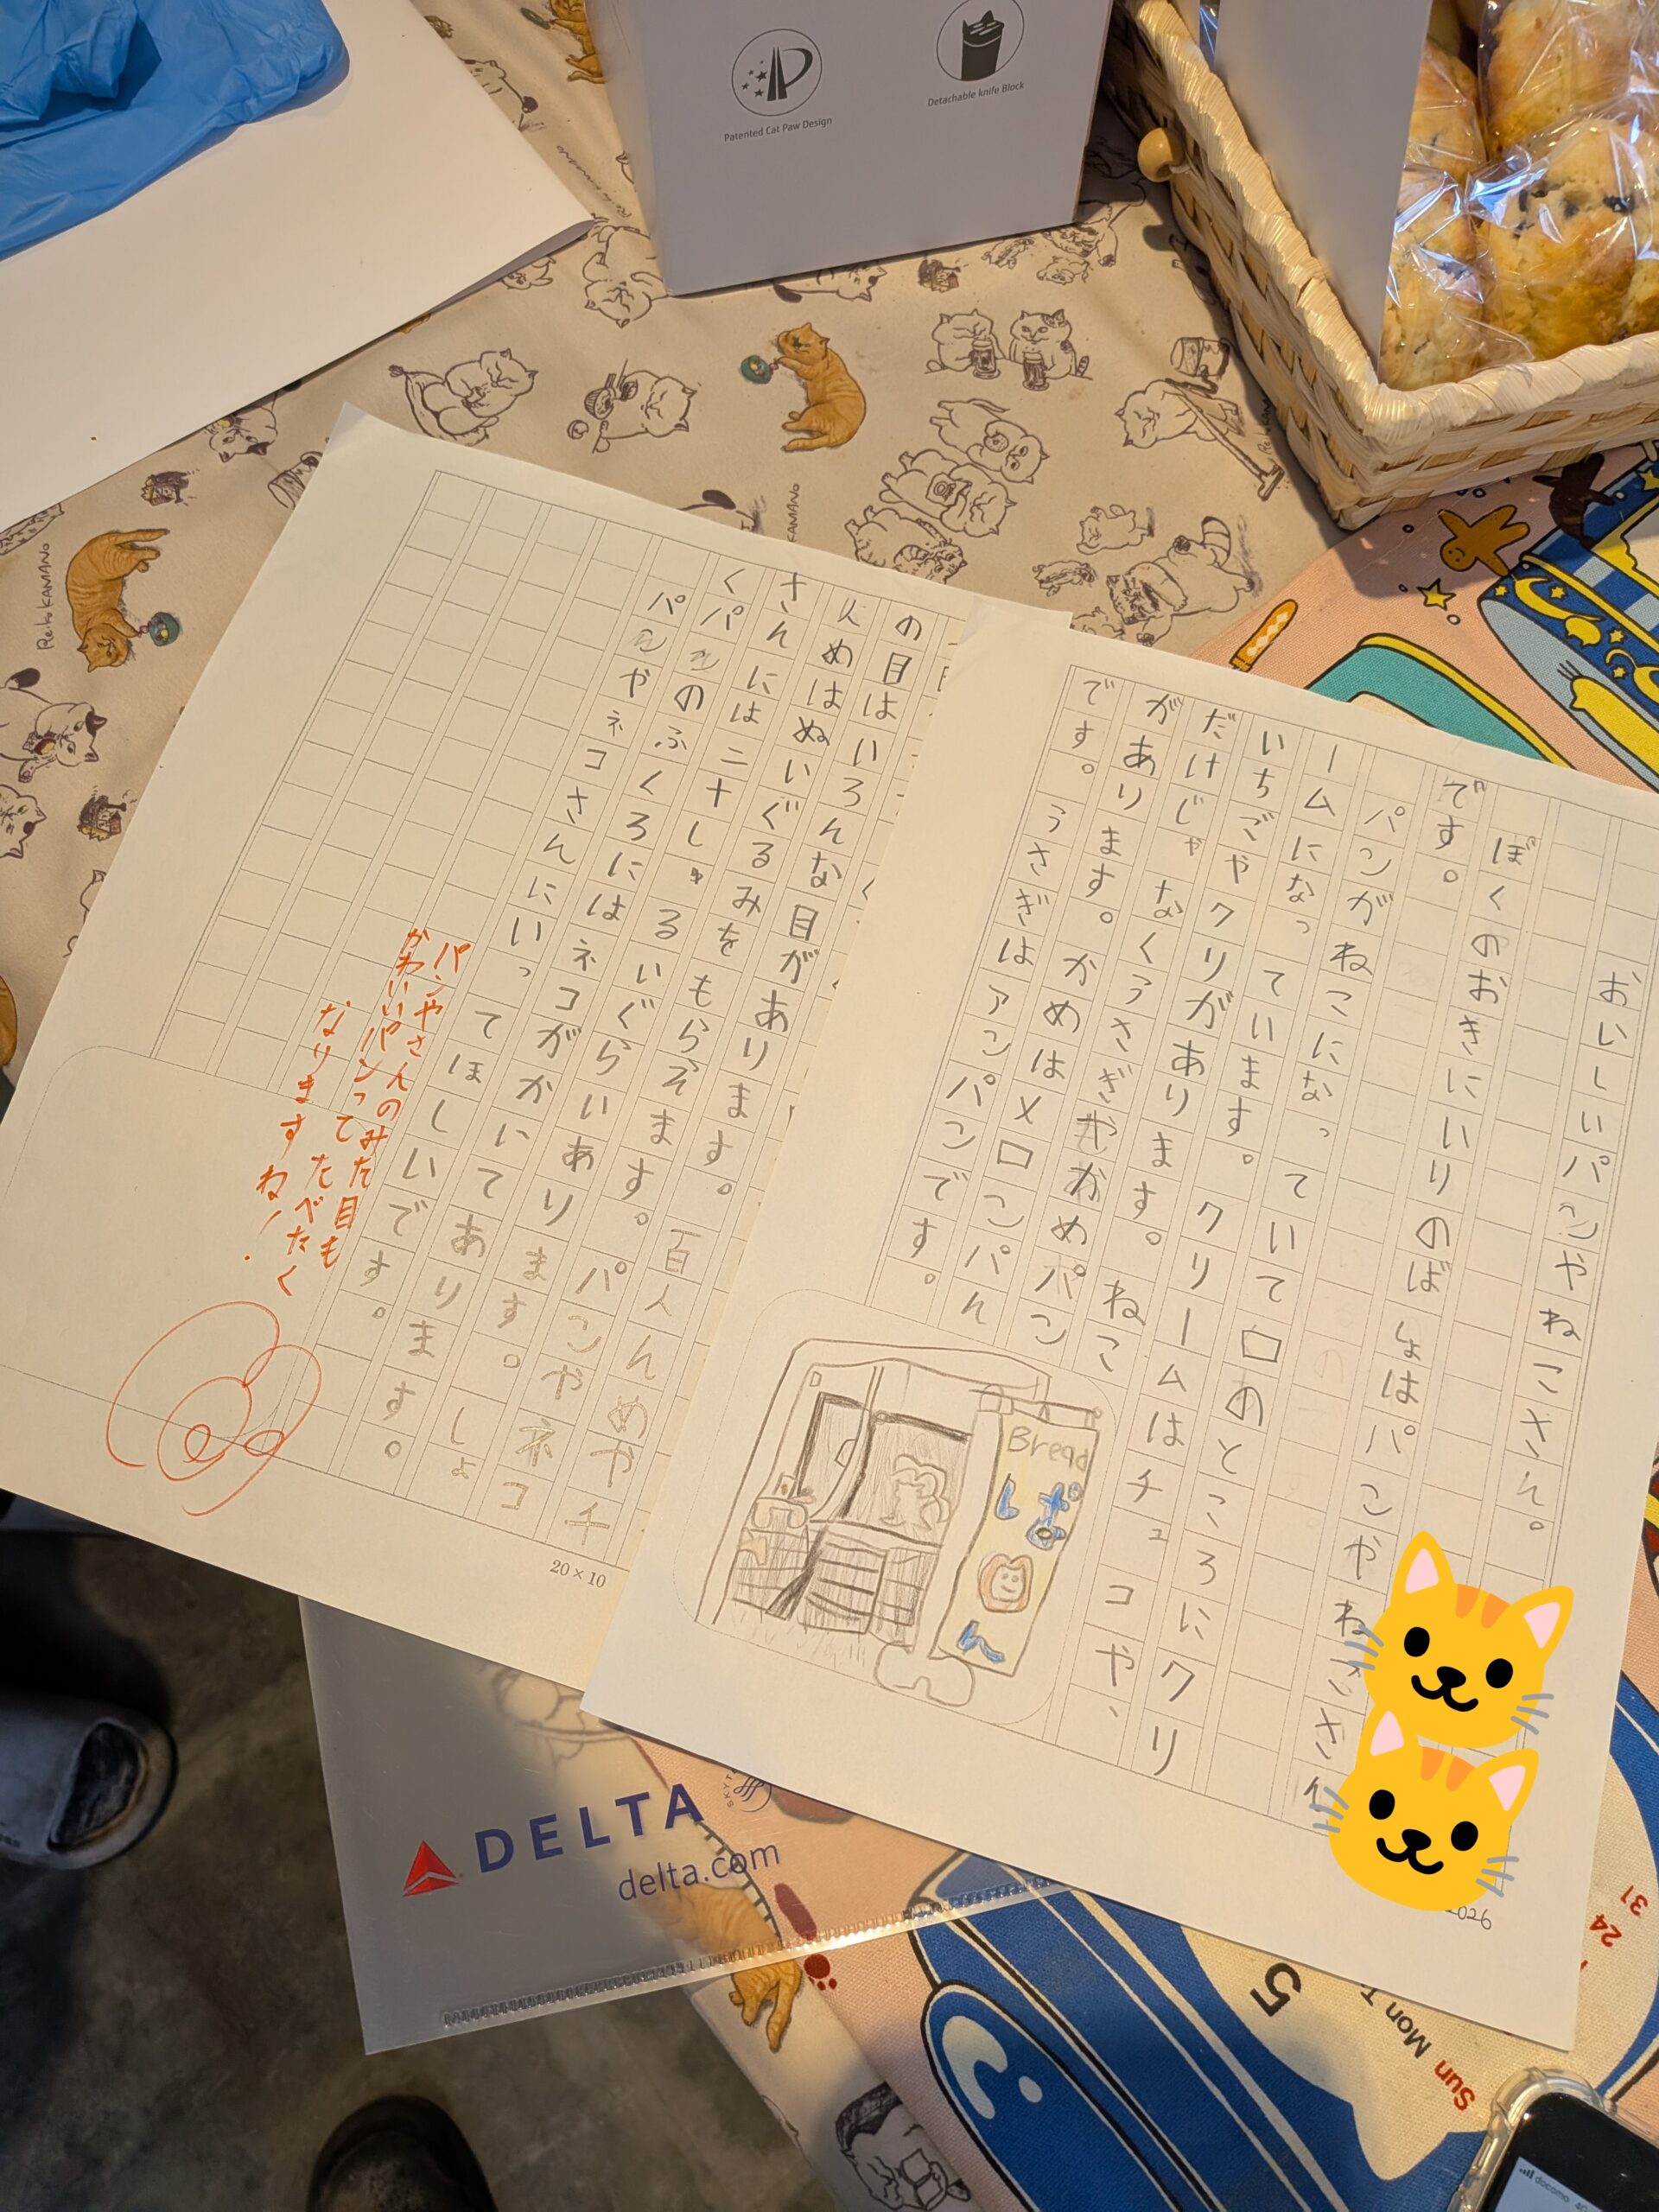 Patented Cat Paw Design
Detachable knife Block
Reiko KAMANO
おいしいパンやねこさん。
ぼくのおきにいりのばしょはパンやねこさん
です。
パンがねこになっていて口のところにクリ
ームになっています。クリームはチュコや、
いちごやクリがあります。ねこ
だけじゃなくうさぎやかめパン
があります。かめはメロンパん
です。うさぎはアンパンです。
Bread
ぱん
2026
の目はいろんな目があります。百人んめやチ
人めはぬいぐるみをもらえます。パンやネコ
さんには二十しゅるいぐらいあります。しょ
くパンのふくろにはネコがかいてあります。
パンやネコさんにいってほしいです。
パンやさんのみた目も
かわいいパンってたべたく
なりますね!
20×10
DELTA
delta.com
5
Sun Mon T
24
31
docomo